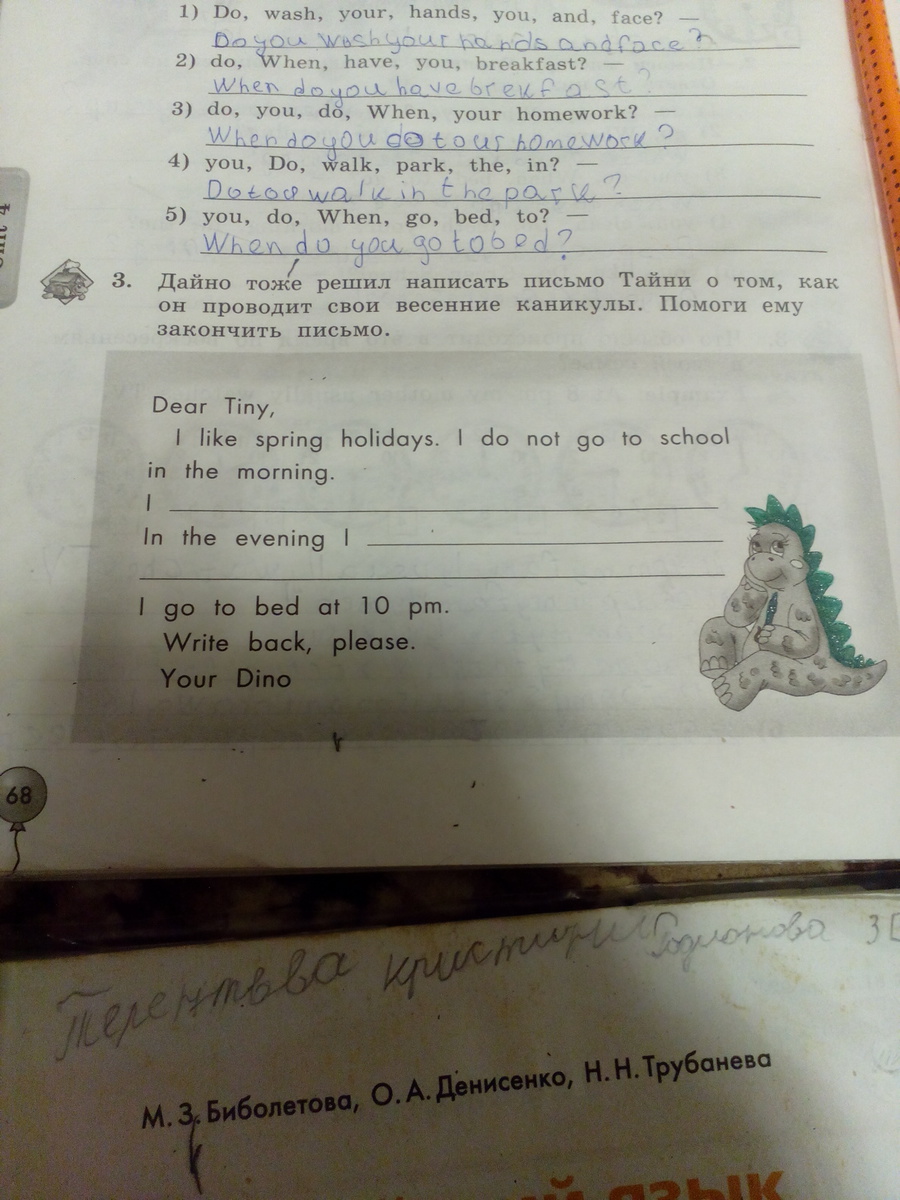 1) Do, wash, your, hands, you, and, face? —
Do you wosh your hands and face?
2) do, When, have, you, breakfast? —
When do you have brekfast?
3) do, you, do, When, your homework? —
When do you do tour homework?
4) you, Do, walk, park, the, in? —
Do walk in the park?
5) you, do, When, go, bed, to? —
When do you go to bed?
3. Дайно тоже решил написать письмо Тайни о том, как
он проводит свои весенние каникулы. Помоги ему
закончить письмо.
Dear Tiny,
I like spring holidays. I do not go to school
in the morning.
I
In the evening I
I go to bed at 10 pm.
Write back, please.
Your Dino
68
Кристины Родионова 3
М. З. Биболетова, О. А. Денисенко, Н. Н. Трубанева
язык